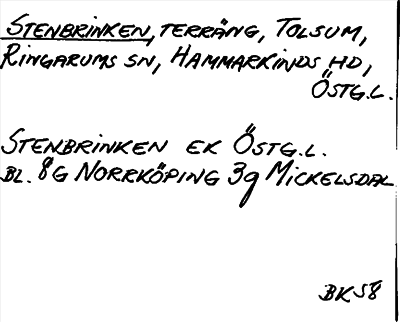 STENBRINKEN, TERRÄNG, TOLSUM,
RINGARUMS SN, HAMMARKINDS HD,
ÖSTG.L.
STENBRINKEN EK ÖSTG.L.
BL. 8G NORRKÖPING 3g MICKELSDAL
BK58